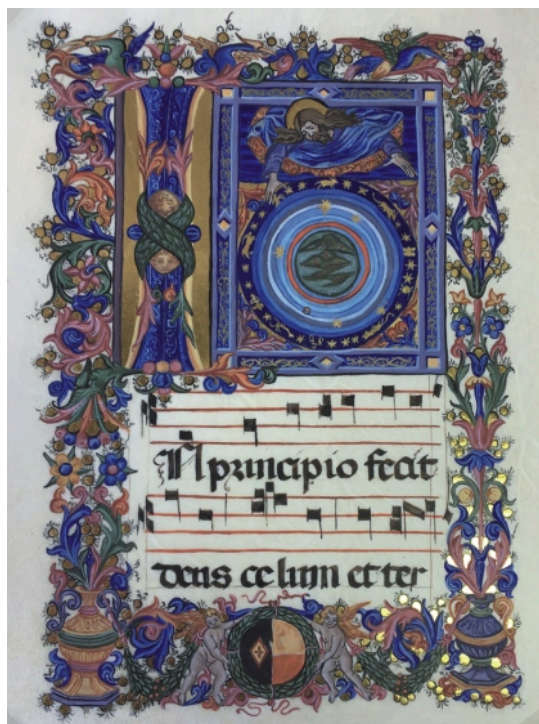 IN principio fecit
deus celum et ter